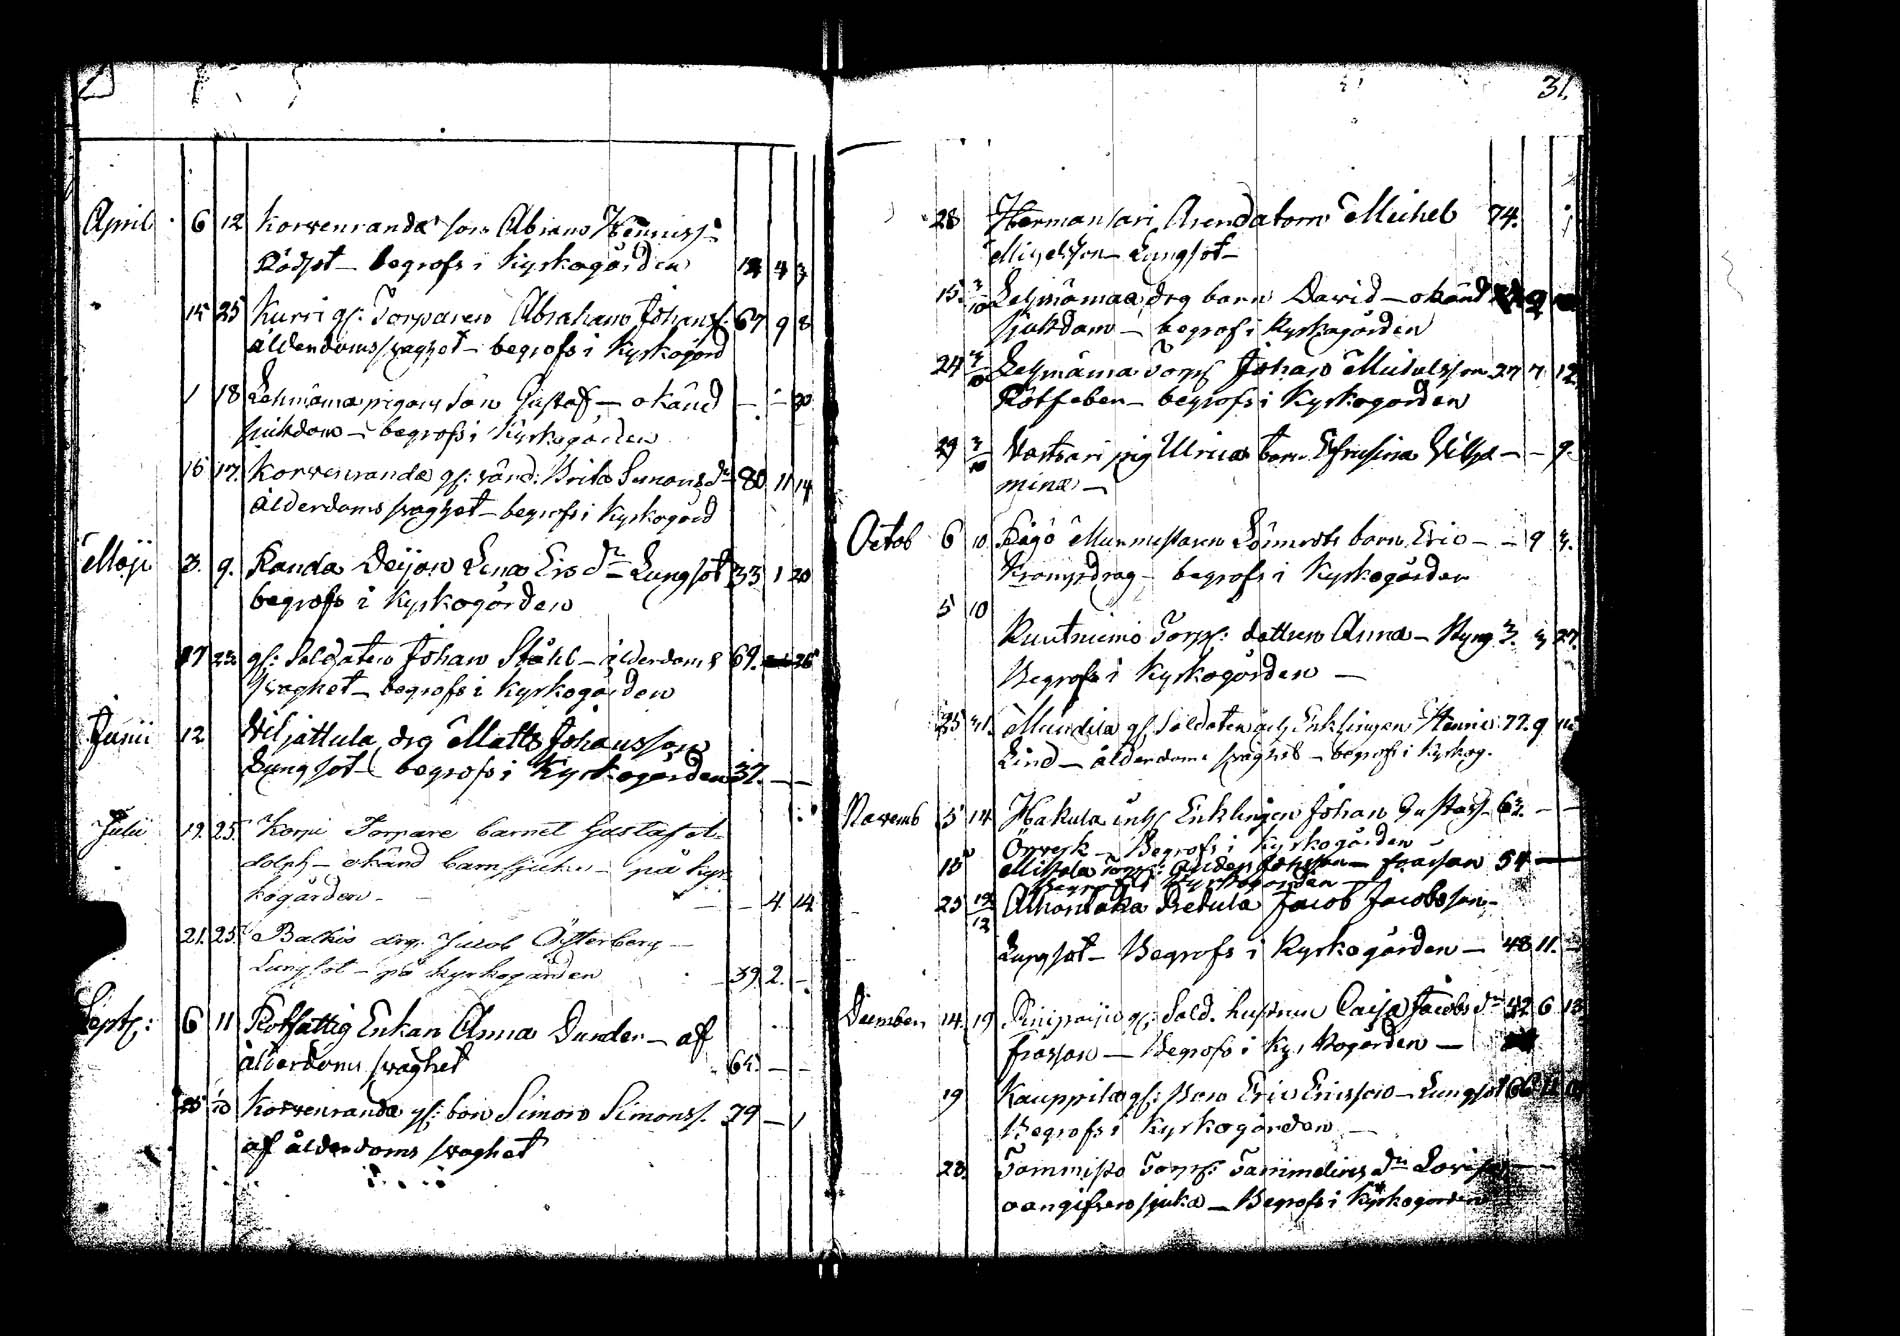 April 6 12 Korvenranda son Abram Henriss.
Rödsot - begrofs i Kyrkogården 12 4 3
15 25 Kurri gf: Torparen Abraham Johanss: 67 9 8
ålderdoms svaghet - begrofs i Kyrkogård
1 18 Lehmämaa pigans Son Gustaf - okänd - - 30
sjukdom - begrofs i Kyrkogården
15 17. Korvenranda gf: värd: Brita Simonsdr 80 11 14
ålderdoms svaghet - begrofs i Kyrkogård
Maji 3. 9. Randa Deijan Lena Ersdr - Lungsot 33 1 20
begrofs i Kyrkogården
17 23 gf: Soldaten Johan Ståhl - ålderdoms 69. 26
svaghet - begrofs i Kyrkogården
Junii 12 Viljattula drg Matts Johansson
Lungsot - begrofs i Kyrkogården 37. - -
Julii 19. 25. Korpi Torpare barnet Gustaf A-
dolph - okänd barnsjuka - på Kyr-
kogården - - - 4 14
21. 25. Balkis drg. Jacob Österberg -
Lungsot - på kyrkogården 39 2. -
Septr: 6 11 Rotfattig Enkan Anna Dunder - af
ålderdoms svaghet 65. - -
25 Korvenranda gf: bon Simon Simonss. 79 - 1
af ålderdoms svaghet
31.
28 Hermansari Arendatorn Michel 74.
Michelsson - Lungsot -
15. 3/10 Lehmämaa drg barn David - okänd 2
sjukdom - begrof i Kyrkogården
24 3/10 Lehmämaa Torp: Johan Michelsson 27 7 12
Rötfeber - begrofs i Kyrkogården
29 3/10 pig Ulricas barn Efrusina Vilhel- - - 9.
mina -
Octob 6 10 barn Eric - - 9 3.
Kramp drag - begrofs i Kyrkogården
5 10
Ruutniemi Torp: dottren Anna - 3. 3 27.
Begrofs i Kyrkogården -
25 31. Mundila gf: Soldaten Enklingen Henric 77. 9
Lind - ålderdoms svaghet - begrof i Kyrkog.
Novemb 5 14 Hakula inhs Enklingen Johan Gustafss. 63. - -
Begrofs i Kyrkogården
18 frossan 54 -
Begrofs i Kyrkogården -
25 12/12 Alhonoka Betula Jacob Jacobsson -
Lungsot - Begrofs i Kyrkogården - 48 11. -
December 14 19 gf: Sold. hustrun Caisa Jacobsdr 42 6 13
frossan - Begrofs i Kyrkogården -
19 Kauppila gf: Eric Ericsson - Lungsot
Begrofs i Kyrkogården -
23. Tommila Torp: dr Lovisa - -
oangifven sjuka - Begrofs i Kyrkogården